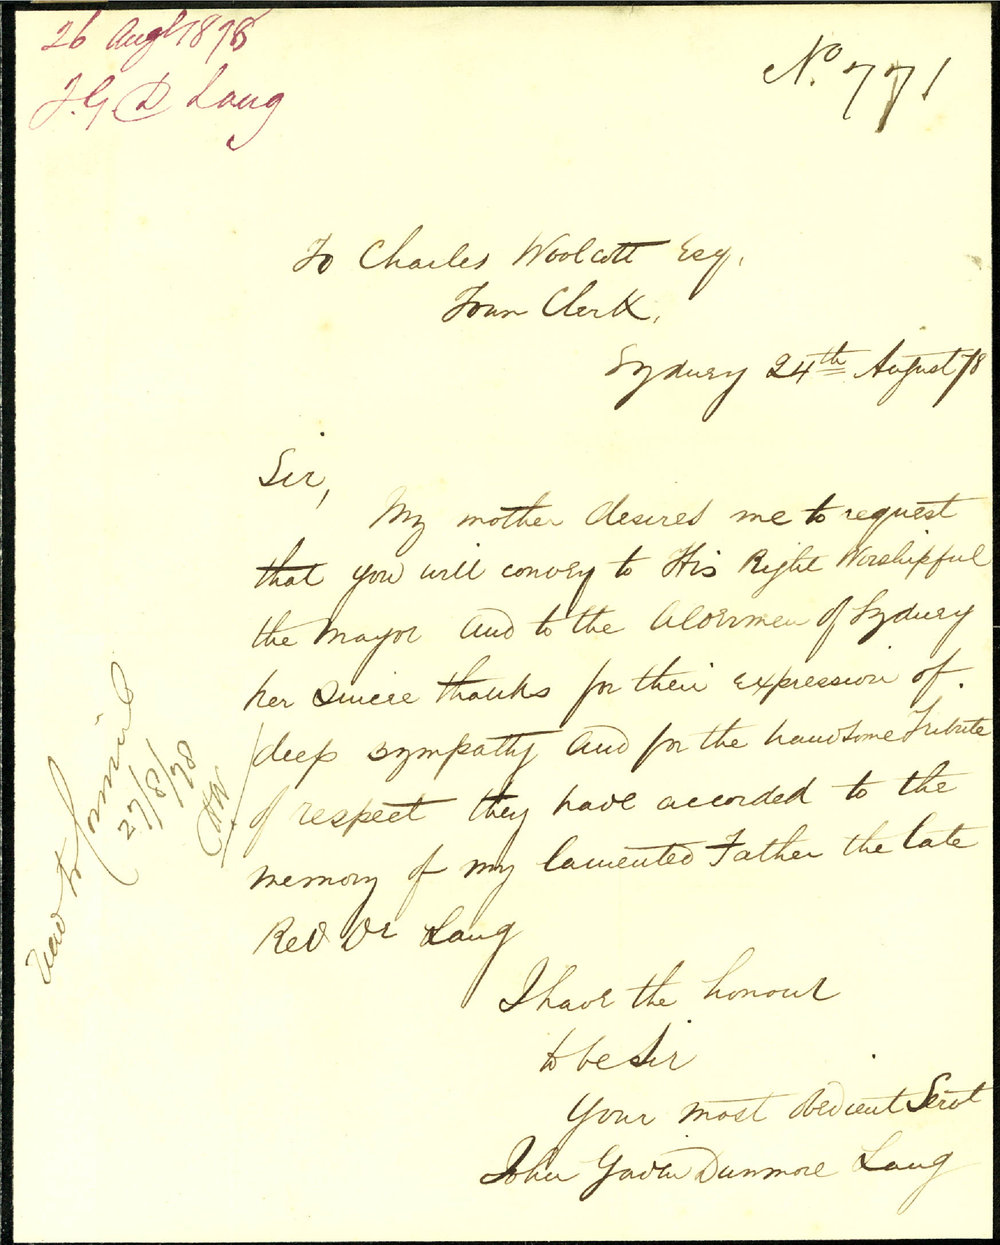 26 Augt 1878
J. G. D Lang
No. 771
To Charles Woolcott Esq.
Town Clerk,
Sydney 24th August/78
Sir,
My mother desires me to request
that you will convey to His Right Worshipful
the Mayor and to the Aldermen of Sydney
her sincere thanks for their expression of
deep sympathy and for the handsome Tribute
of respect they have accorded to the
memory of my lamented Father the late
Revd Dr Lang
I have the honour
to be Sir
Your most obedient Servt
John Gavin Dunmore Lang
Read to Council
27/8/78
CHW